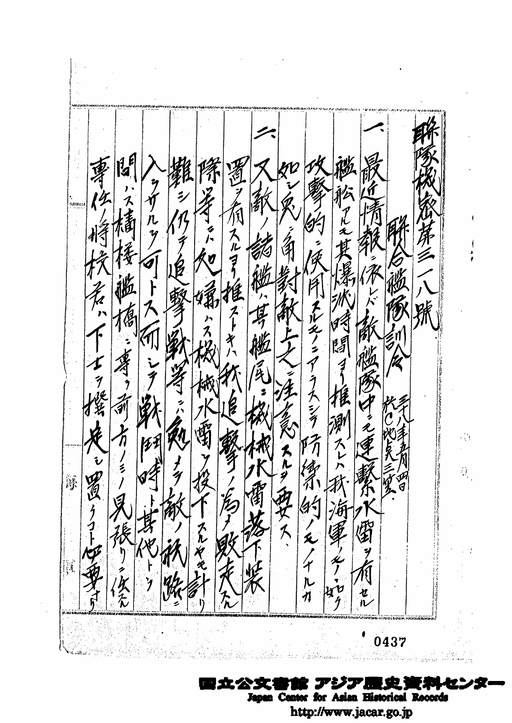 聯隊機密第三一八號
聯合艦隊訓令
三十八年五月四日
於 地点三笠
一、最近情報ニ依レバ敵艦隊中ニ連繋水雷ヲ有セル
艦船アルモ其爆沈時間ヨリ推測スレハ我海軍ノモノノ如ク
攻撃的ニ使用スルモノニアラスシテ防禦的ノモノナルカ
如シ兎ニ角對敵上之ニ注意スルヲ要ス、
二、又敵ノ諸艦ハ其艦尾ニ機械水雷落下装
置ヲ有スルヨリ推ストキハ我追撃ノ為メ敗走スル
際等ニハ如斯ハス機械水雷ヲ投下スルヤモ計リ
難シ仍ヲ追撃戦等ニハ勉メテ敵ノ航路ニ
入ラサルヲ可トス而シテ戦闘時ト其他トヲ
問ハス檣楼艦橋ニ専ラ前方ノミノ見張リニ任スル
専任ノ将校若ハ下士ヲ撰定シ置クコト必要ナリ
0437
国立公文書館 アジア歴史資料センター
Japan Center for Asian Historical Records
http://www.jacar.go.jp